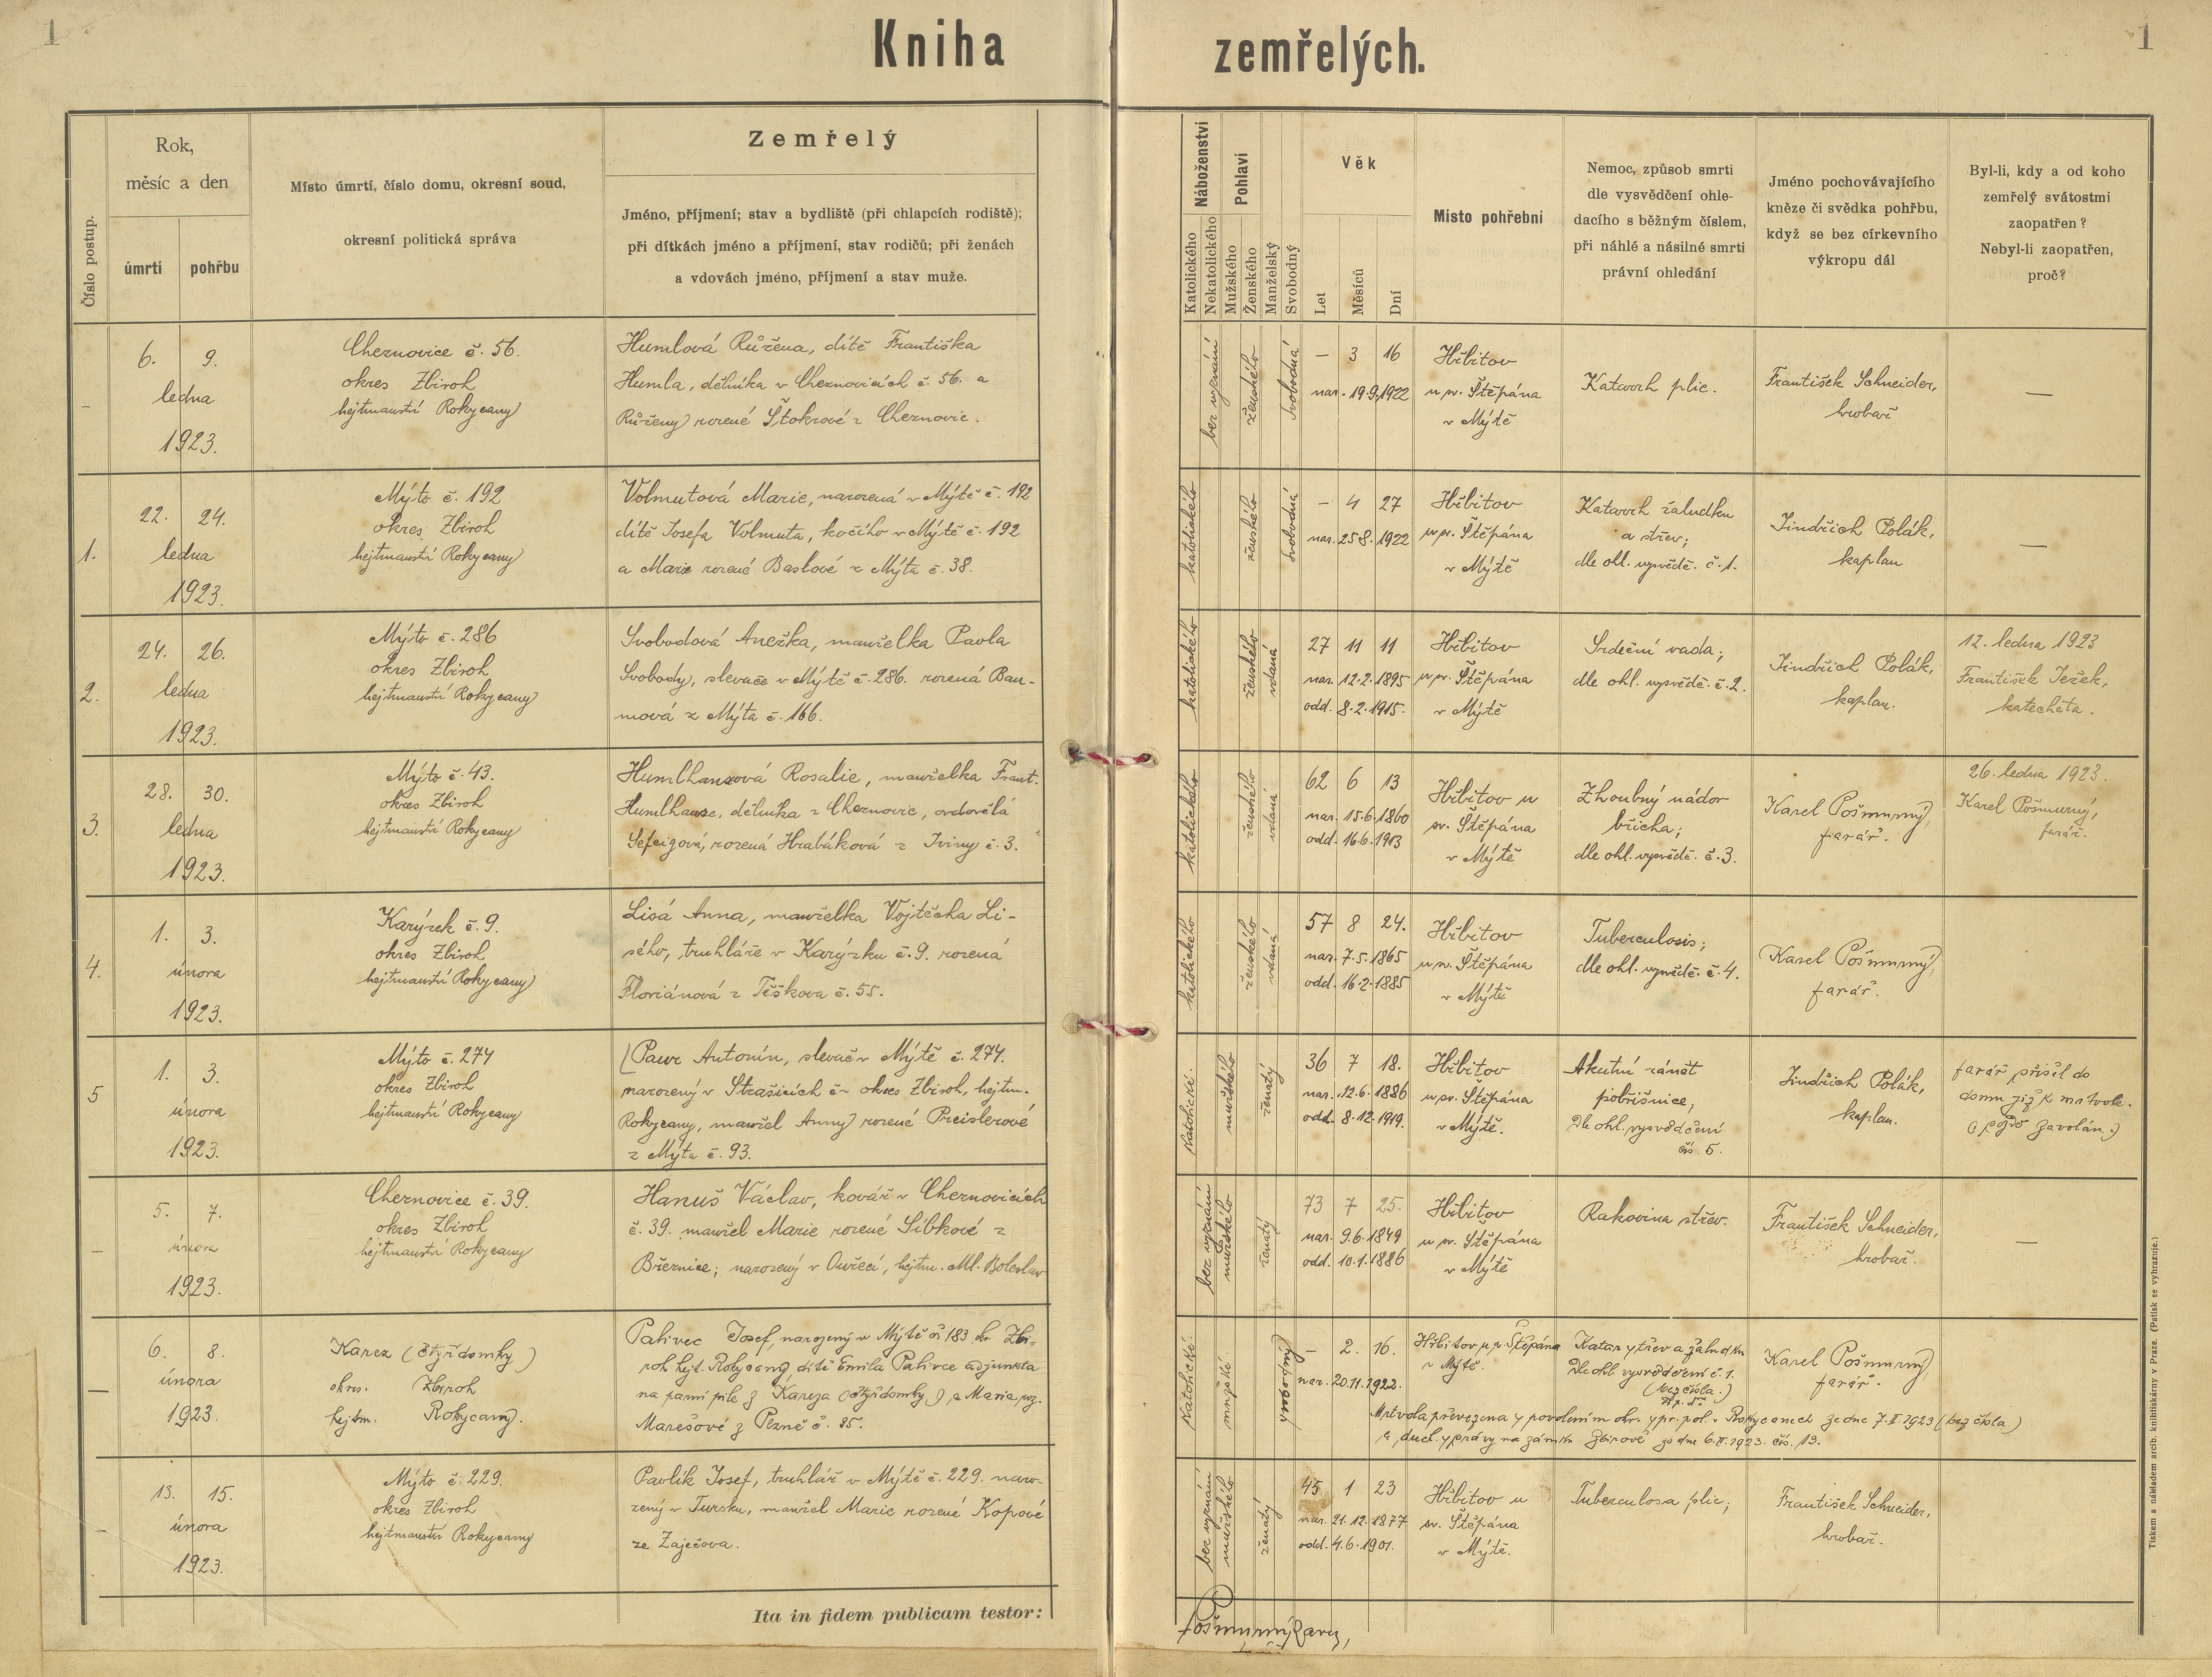 1
Kniha zemřelých.
1
Číslo postup.
Rok,
měsíc a den
úmrtí
pohřbu
Místo úmrtí, číslo domu, okresní soud,
okresní politická správa
Zemřelý
Jméno, příjmení; stav a bydliště (při chlapcích rodiště);
při dítkách jméno a příjmení, stav rodičů; při ženách
a vdovách jméno, příjmení a stav muže.
Náboženství
Katolického
Nekatolického
Pohlaví
Mužského
Ženského
Manželský
Svobodný
Věk
Let
Měsíců
Dní
Místo pohřební
Nemoc, způsob smrti
dle vysvědčení ohle-
dacího s běžným číslem,
při náhlé a násilné smrti
právní ohledání
Jméno pochovávajícího
kněze či svědka pohřbu,
když se bez církevního
výkropu dál
Byl-li, kdy a od koho
zemřelý svátostmi
zaopatřen?
Nebyl-li zaopatřen,
proč?
–
6. 9.
ledna
1923.
Cheznovice č. 56.
okres Zbiroh
hejtmanství Rokycany
Humlová Růžena, dítě Františka
Humla, dělníka v Cheznovicích č. 56. a
Růženy rozené Štokrové z Cheznovic.
bez vyznání
ženského
svobodná
– 3 16
nar. 19.9.1922
Hřbitov
u sv. Štěpána
v Mýtě
Katarrh plic.
František Schneider,
hrobař
—
1.
22. 24.
ledna
1923.
Mýto č. 192
okres Zbiroh
hejtmanství Rokycany
Volmutová Marie, narozená v Mýtě č. 192
dítě Josefa Volmuta, kočího v Mýtě č. 192
a Marie rozené Baslové z Mýta č. 38.
katolického
ženského
svobodná
– 4 27
nar. 25.8.1922
Hřbitov
u sv. Štěpána
v Mýtě
Katarrh žaludku
a střev;
dle ohl. vysvědč. č. 1.
Jindřich Polák,
kaplan
—
2.
24. 26.
ledna
1923.
Mýto č. 286
okres Zbiroh
hejtmanství Rokycany
Svobodová Anežka, manželka Pavla
Svobody, slevače v Mýtě č. 286. rozená Bau-
mová z Mýta č. 166.
katolického
ženského
vdaná
27 11 11
nar. 12.2.1895
odd. 8.2.1915.
Hřbitov
u sv. Štěpána
v Mýtě
Srdeční vada;
dle ohl. vysvědč. č. 2.
Jindřich Polák,
kaplan.
12. ledna 1923
František Ježek,
katecheta.
3.
28. 30.
ledna
1923.
Mýto č. 43.
okres Zbiroh
hejtmanství Rokycany
Humlhansová Rosalie, manželka Frant.
Humlhanse, dělníka z Cheznovic, ovdovělá
rozená Hrabáková z Jviny č. 3.
katolického
ženského
vdaná
62 6 13
nar. 15.6.1860
odd. 16.6.1913
Hřbitov u
sv. Štěpána
v Mýtě
Zhoubný nádor
břicha;
dle ohl. vysvědč. č. 3.
Karel Pošmurný,
farář.
26. ledna 1923.
Karel Pošmurný,
farář.
4.
1. 3.
února
1923.
Karýzek č. 9.
okres Zbiroh
hejtmanství Rokycany
Lisá Anna, manželka Vojtěcha Li-
sého, truhláře v Karýzku č. 9. rozená
Floriánová z Těškova č. 55.
katolického
ženského
vdaná
57 8 24.
nar. 7.5.1865
odd. 16.2.1885
Hřbitov
u sv. Štěpána
v Mýtě
Tuberculosis;
dle ohl. vysvědč. č. 4.
Karel Pošmurný,
farář.
5
1. 3.
února
1923.
Mýto č. 274
okres Zbiroh
hejtmanství Rokycany
Paur Antonín, slevač v Mýtě č. 274.
narozený v Strašicích č – okres Zbiroh, hejtm.
Rokycany, manžel Anny rozené Preislerové
z Mýta č. 93.
katolické.
mužského
ženatý
36 7 18.
nar. 12.6.1886
odd. 8.12.1919.
Hřbitov
u sv. Štěpána
v Mýtě.
Akutní zánět
pobřišnice;
Dle ohl. vysvědčení
čís. 5.
Jindřich Polák,
kaplan.
farář přišel do
domu již k mrtvole.
(pozdě zavolán.)
–
5. 7.
února
1923.
Cheznovice č. 39.
okres Zbiroh
hejtmanství Rokycany
Hanuš Václav, kovář v Cheznovicích
č. 39. manžel Marie rozené Sibkové z
Březnice; narozený v hejtm. Ml. Boleslav
bez vyznání
mužského
ženatý
73 7 25.
nar. 9.6.1849
odd. 10.1.1886
Hřbitov
u sv. Štěpána
v Mýtě
Rakovina střev.
František Schneider,
hrobař.
—
–
6. 8.
února
1923.
Karez (čtyřdomky)
okres. Zbiroh
hejtm. Rokycany.
Pativec Josef, narozený v Mýtě č. 183 okr. Zbi-
roh hejt. Rokycany dítě Emila Pativce adjunkta
na parní pile z Kareza (čtyřdomky) a Marie roz.
Marešové z Plzně č. 35.
katolické.
mužské
svobodný
– 2. 16.
nar. 20.11.1922.
Hřbitov u sv. Štěpána
v Mýtě.
Katar střev a žaludku
Dle ohl. vysvědčení č. 1.
(bez čísla.)
Karel Pošmurný,
farář.
Mrtvola převezena s povolením okr. spr. pol. v Rokycanech ze dne 7.II.1923 (bez čísla)
a duch. správy na zámku Zbirově ze dne 6.II.1923. čís. 13.
–
13. 15.
února
1923.
Mýto č. 229.
okres Zbiroh
hejtmanství Rokycany
Pavlík Josef, truhlář v Mýtě č. 229. naro-
zený v Tursku, manžel Marie rozené Kopové
ze Zaječova.
bez vyznání
mužského
ženatý
45 1 23
nar. 21.12.1877
odd. 4.6.1901.
Hřbitov u
sv. Štěpána
v Mýtě.
Tuberculosa plic;
František Schneider,
hrobař.
Ita in fidem publicam testor:
Pošmurný Karel,
Tiskem a nákladem arcib. knihtiskárny v Praze. (Patisk se vyhrazuje.)